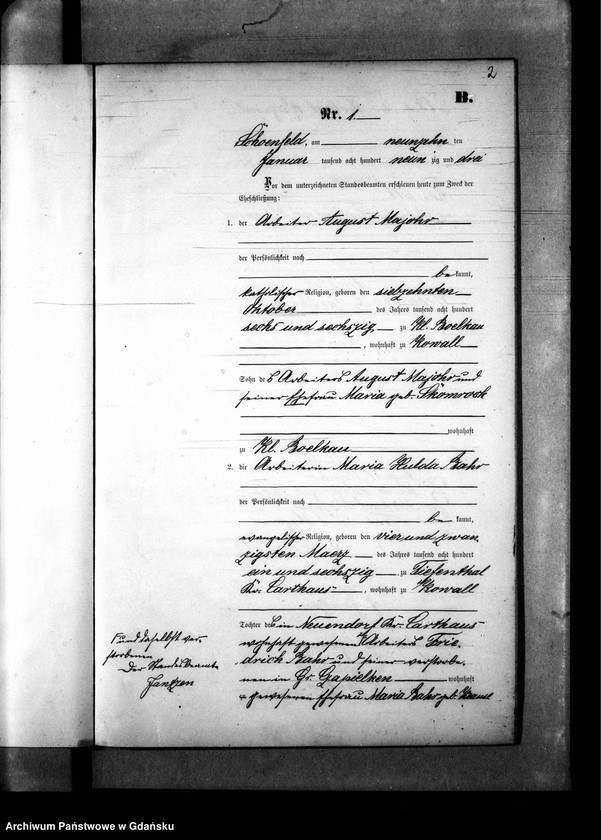 2
B.
Nr. 1.
Schoenfeld, am neunzehn ten
Januar tausend acht hundert neun zig und drei
Vor dem unterzeichneten Standesbeamten erschienen heute zum Zweck der
Eheschließung:
1. der Arbeiter August Majohr
der Persönlichkeit nach
be kannt,
katholischer Religion, geboren den siebzehnten
Oktober des Jahres tausend acht hundert
sechs und sechszig zu Kl. Boelkau
, wohnhaft zu Kowall
Sohn des Arbeiters August Majohr und
seiner Ehefrau Maria geb. Skomrock
wohnhaft
zu Kl. Boelkau
2. die Arbeiterin Maria Hulda Bahr
der Persönlichkeit nach
be kannt,
evangelischer Religion, geboren den vier und zwan-
zigsten Maerz des Jahres tausend acht hundert
ein und sechszig zu Tiefenthal
Kr. Carthaus, wohnhaft zu Kowall
Tochter des in Neuendorf Kr. Carthaus
wohnhaft gewesenen Arbeiters Frie-
drich Bahr und seiner verstorbe-
nen in Gr. Czapielken wohnhaft
gewesenen Ehefrau Maria Bahr geb.
und daselbst ver-
storbenen
Der Standesbeamte
Jantzen
Archiwum Państwowe w Gdańsku